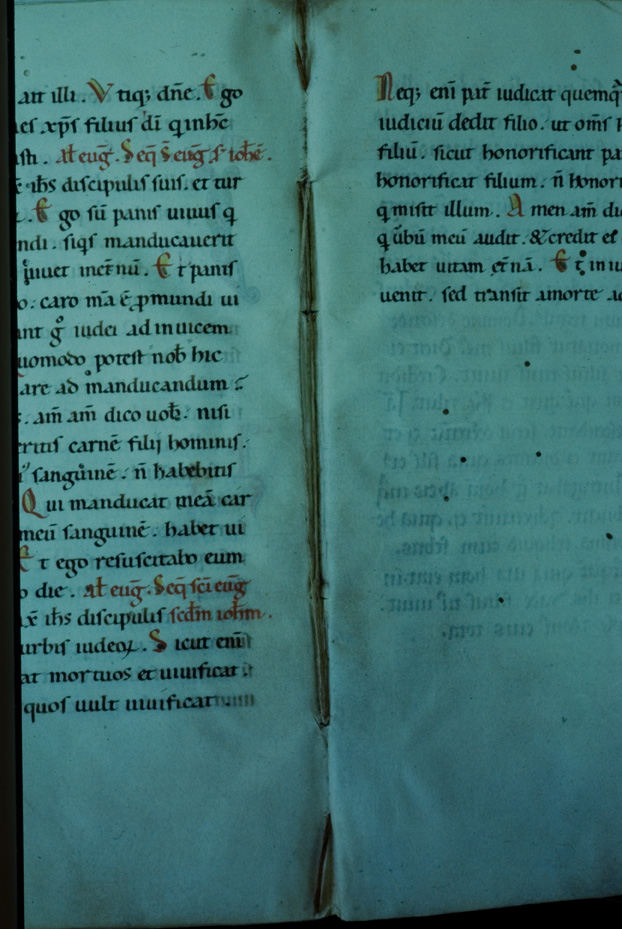 ait illi. Utiq; dn̄e. Ego
xp̄s filius dī q inhc̄
Al̄ euḡ. Seq̄ s̄ euḡ. s̄ ioh̄ē.
ih̄s discipulis suis. et tur
Ego sū panis uiuus q
ndi. siqs manducauerit
uiuet inet̄nū. Et panis
caro m̄a ē ꝓmundi ui
ant gͦ iudei adinuicem
uomodo potest nob̄ hic
are ad manducandum
am̄ am̄ dico uob̄. nisi
eritis carnē filij hominis.
sanguinē. n̄ habebitis
Qui manducat meā car
meū sanguinē. habet ui
Et ego resuscitabo eum
o die. Al̄ euḡ. Seq̄ sc̄i euḡ
ih̄s discipulis scd̄m ioh̄m.
urbis iudeoꝝ. Sicut enī
at mortuos et uiuificat
quos uult uiuificat
Neq; enī pat̄ iudicat quemq̄
iudiciū dedit filio. ut om̄s h
filiū. sicut honorificant pa
honorificat filium. n̄ honori
q misit illum. Amen am̄ di
q ūbū meū audit. & credit ei
habet uitam et̄nā. Et in iu
uenit. sed transit amorte ad